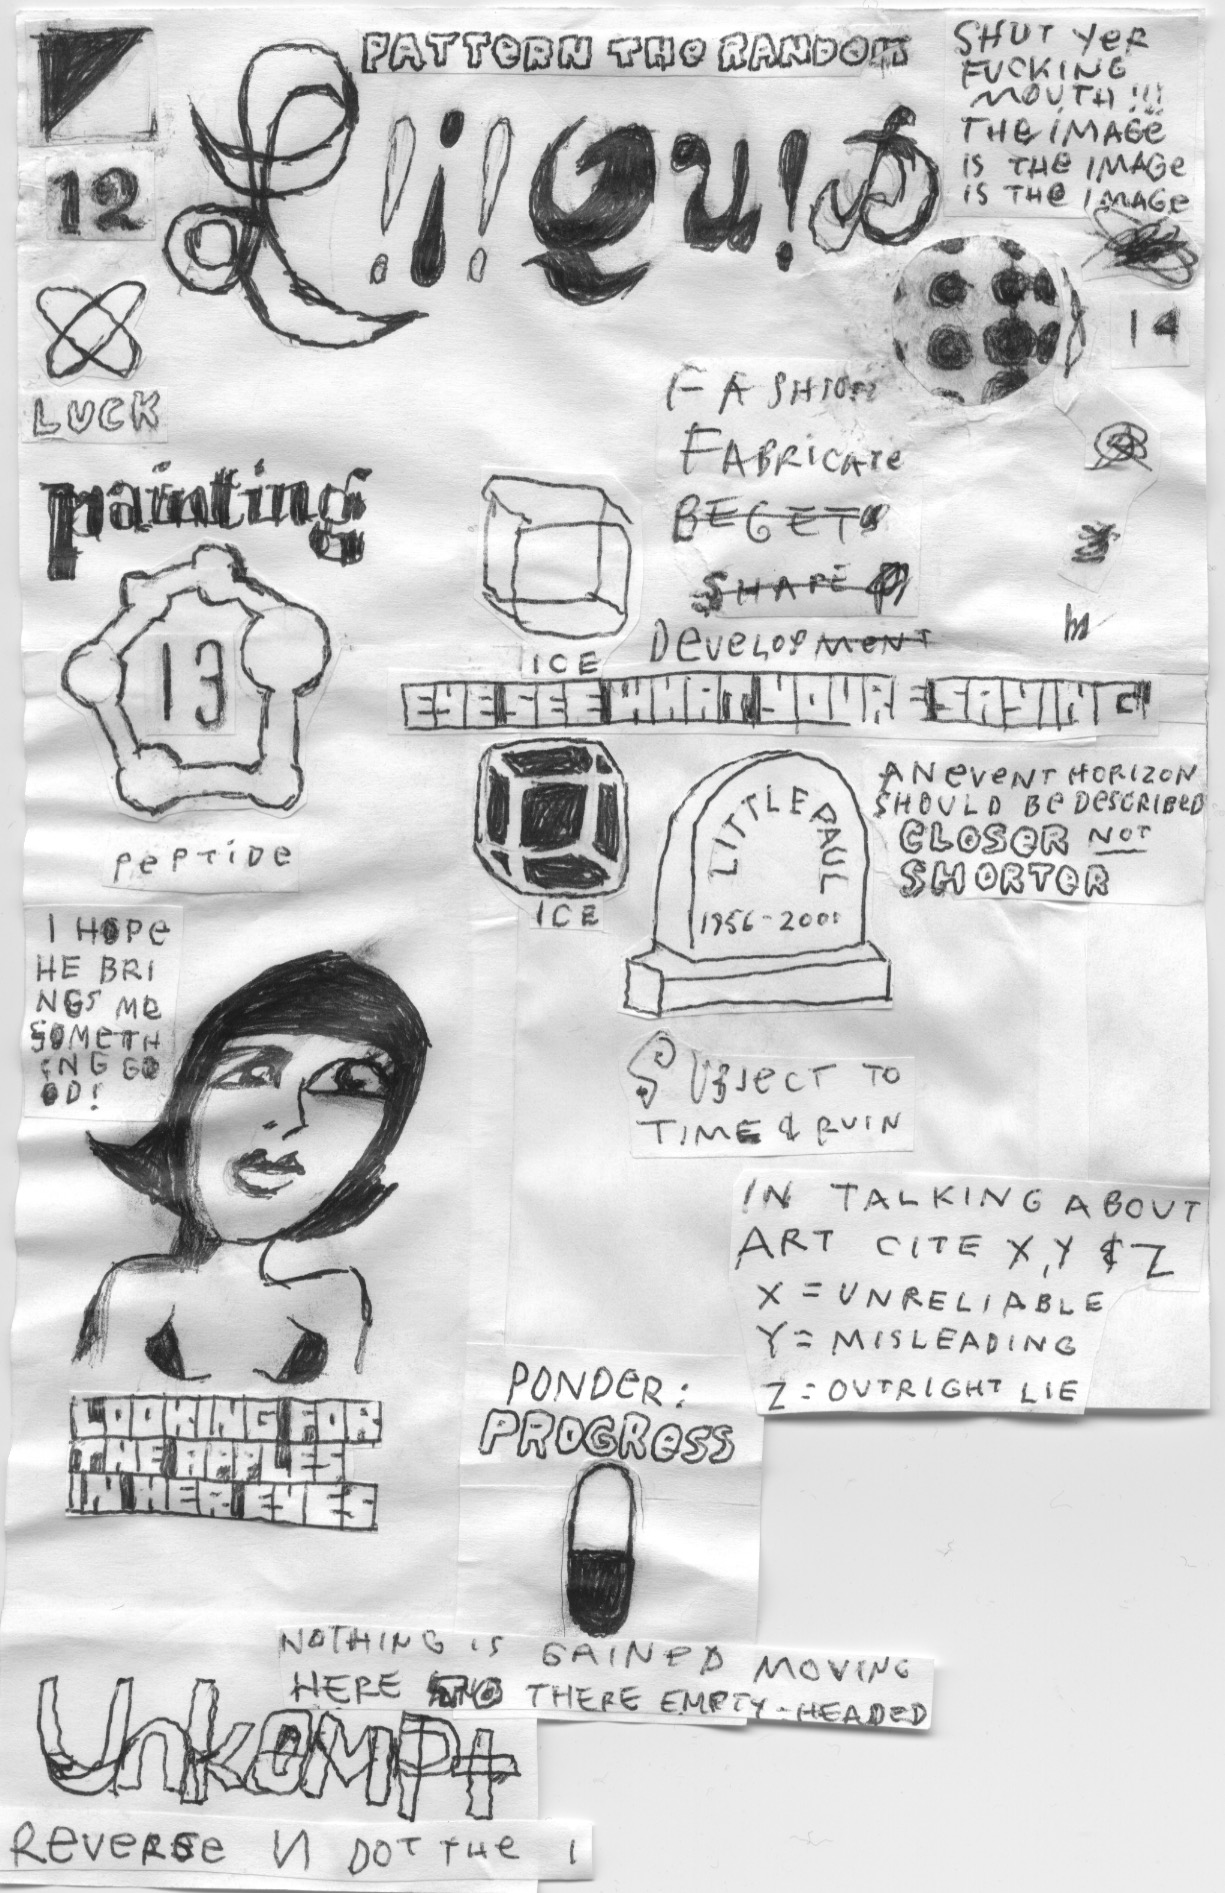 PATTERN THE RANDOM
SHUT YER
FUCKING
MOUTH!!!
THE IMAGE
IS THE IMAGE
IS THE IMAGE
L!i!QU!D
12
14
LUCK
FASHION
FABRICATE
BEGET
SHAPE
DEVELOPMENT
painting
13
PEPTIDE
ICE
EYE SEE WHAT YOUR SAYING
ICE
LITTLE PAUL
1956-2001
AN EVENT HORIZON
SHOULD BE DESCRIBED
CLOSER NOT
SHORTER
I HOPE
HE BRI
NGS ME
SOMETH
ING GO
OD!
SUBJECT TO
TIME & RUIN
IN TALKING ABOUT
ART CITE X, Y & Z
X = UNRELIABLE
Y = MISLEADING
Z = OUTRIGHT LIE
LOOKING FOR
THE APPLES
IN HER EYES
PONDER:
PROGRESS
NOTHING IS GAINED MOVING
HERE TO THERE EMPTY-HEADED
UnkEMPt
REVERSE И DOT THE I